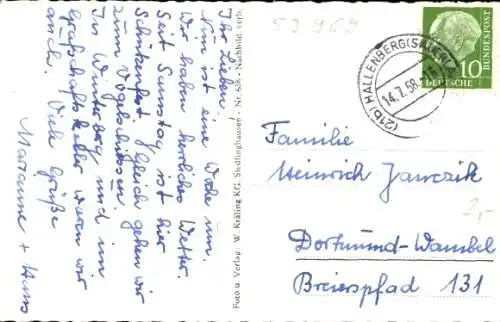 Ihr Lieben!
Nun ist eine Woche um.
Wir haben herrliches Wetter.
Seit Samstag ist hier
Schützenfest. Gleich gehen wir
zum Vogelschiessen.
In Winterberg und im
Grafschafts Keller waren wir
auch. Viele Grüße
Marianne + Hans
Foto u. Verlag: W. Kräling KG. Siedlinghausen - Nr. 636 - Nachbild. verb.
53969
(21b) HALLENBERG (SAUERL)
14.7.58
DEUTSCHE
BUNDESPOST
10
Familie
Heinrich Janczik
Dortmund-Wambel
Breierspfad 131
2,-